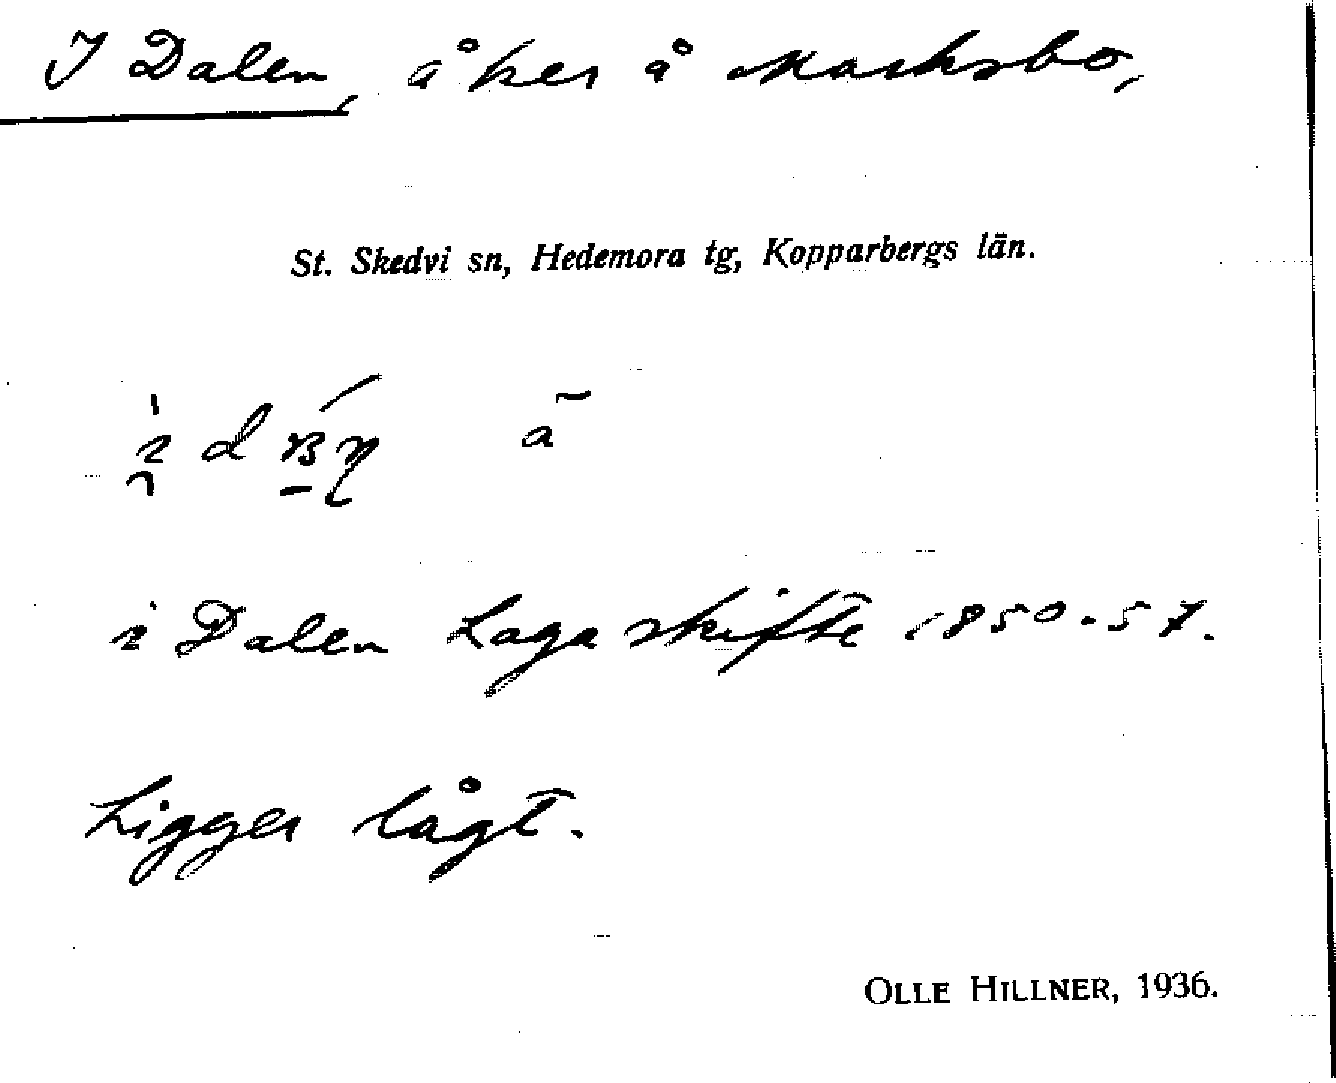 I Dalen, åker å Marksbo,
St. Skedvi sn, Hedemora tg, Kopparbergs län.
i Dalen Laga skifte 1850-57.
Ligger lågt.
OLLE HILLNER, 1936.